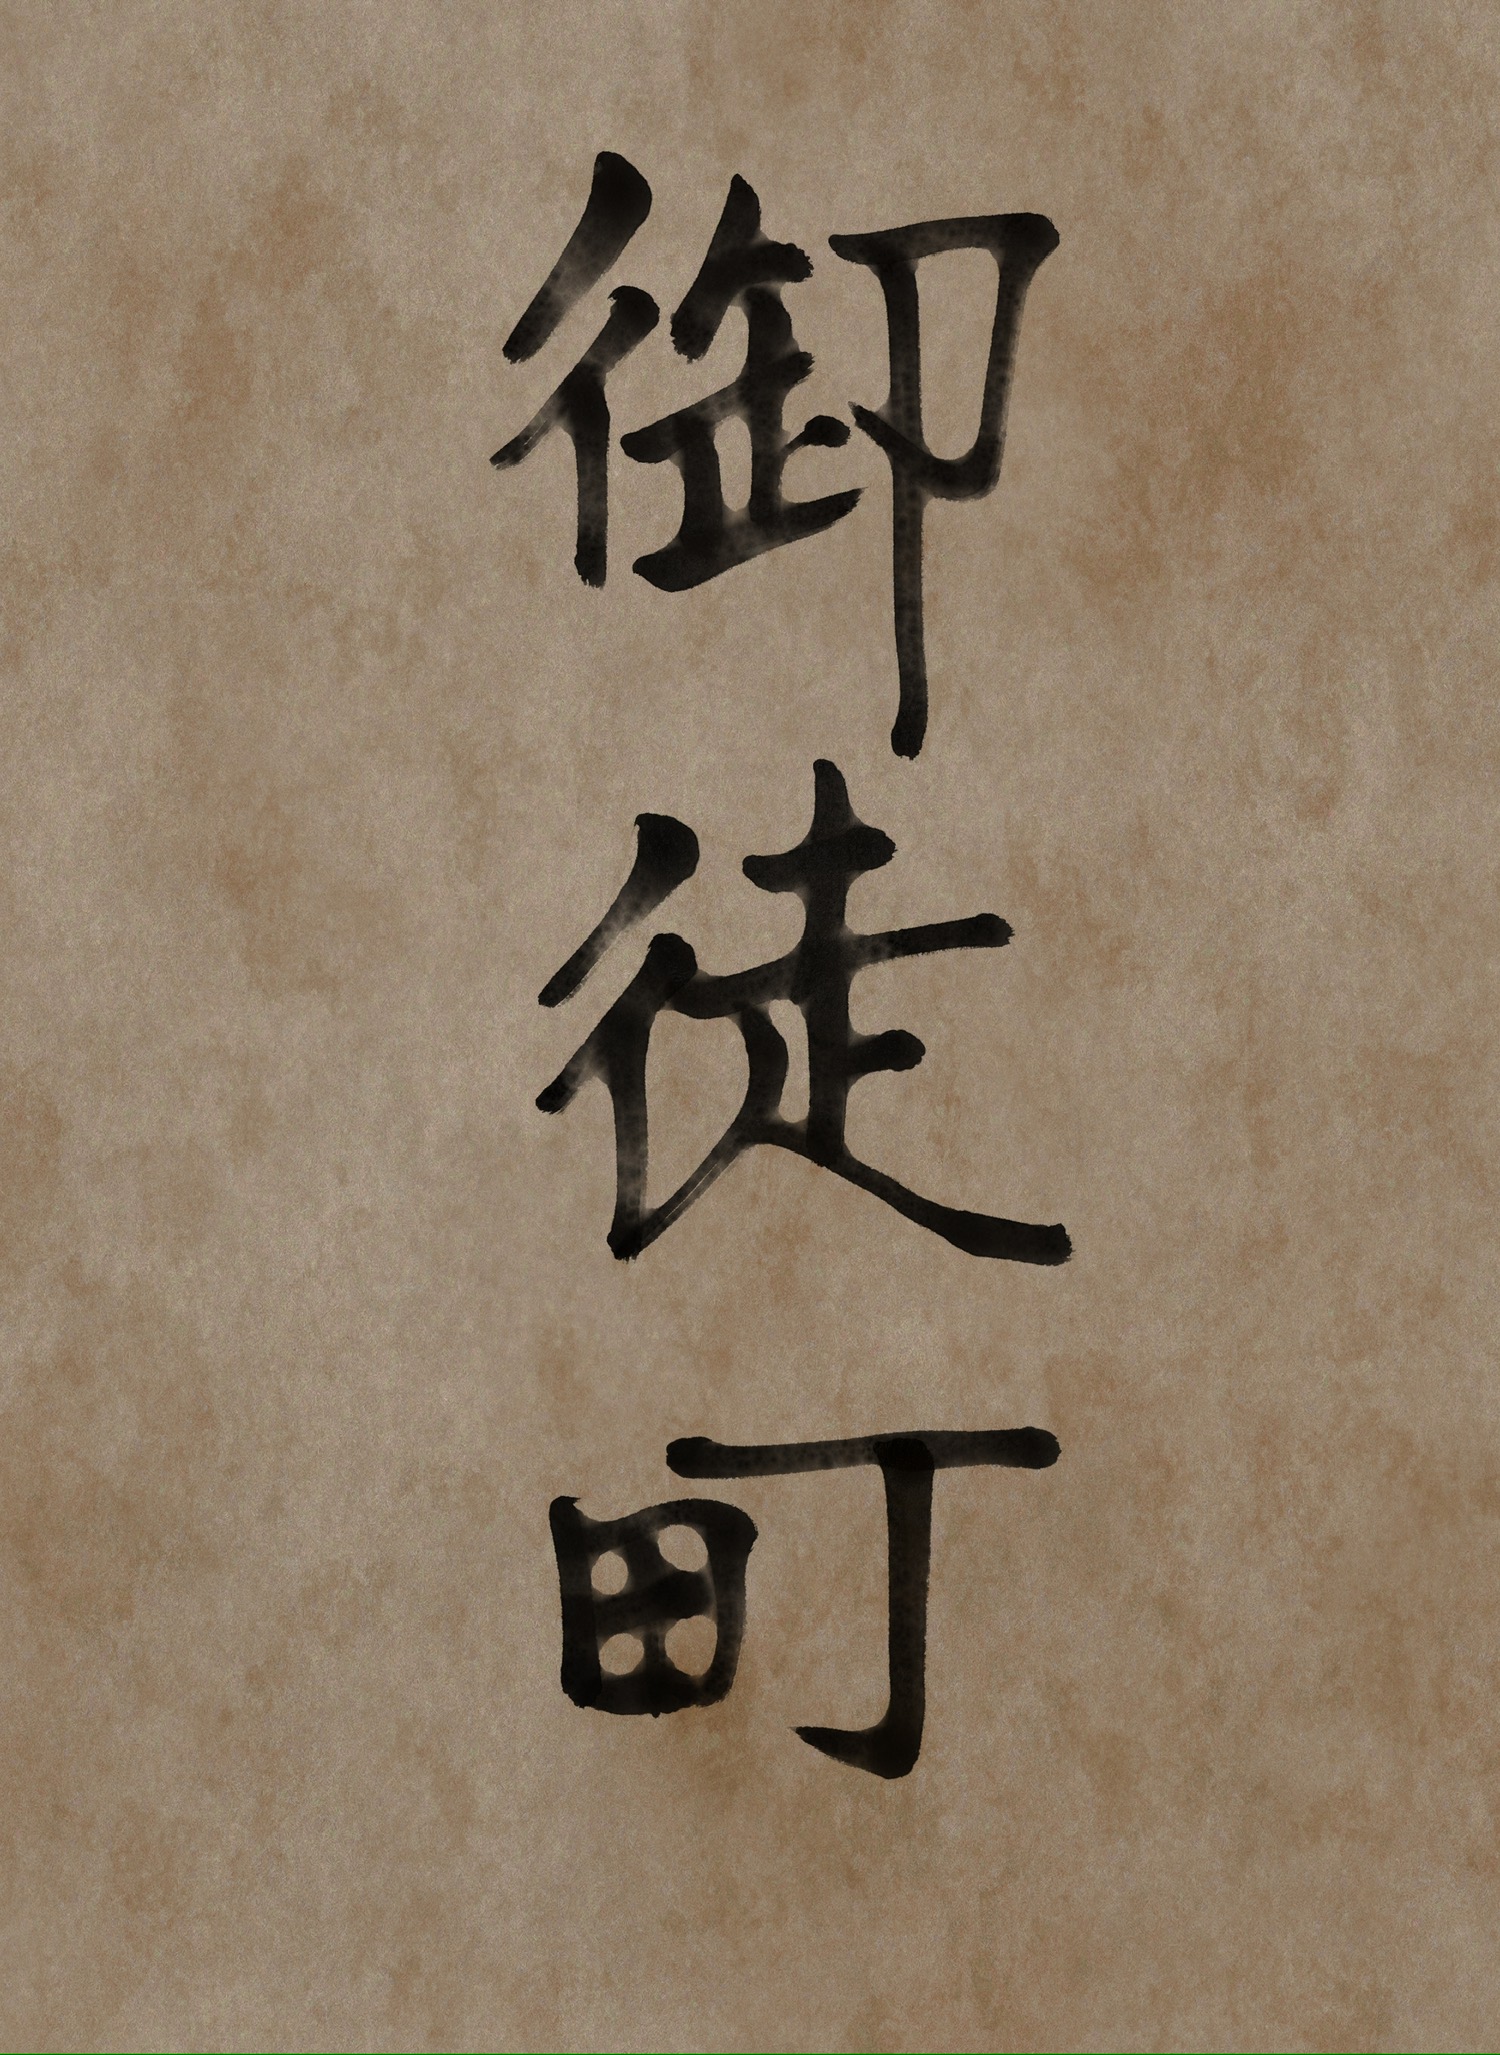 御徒町